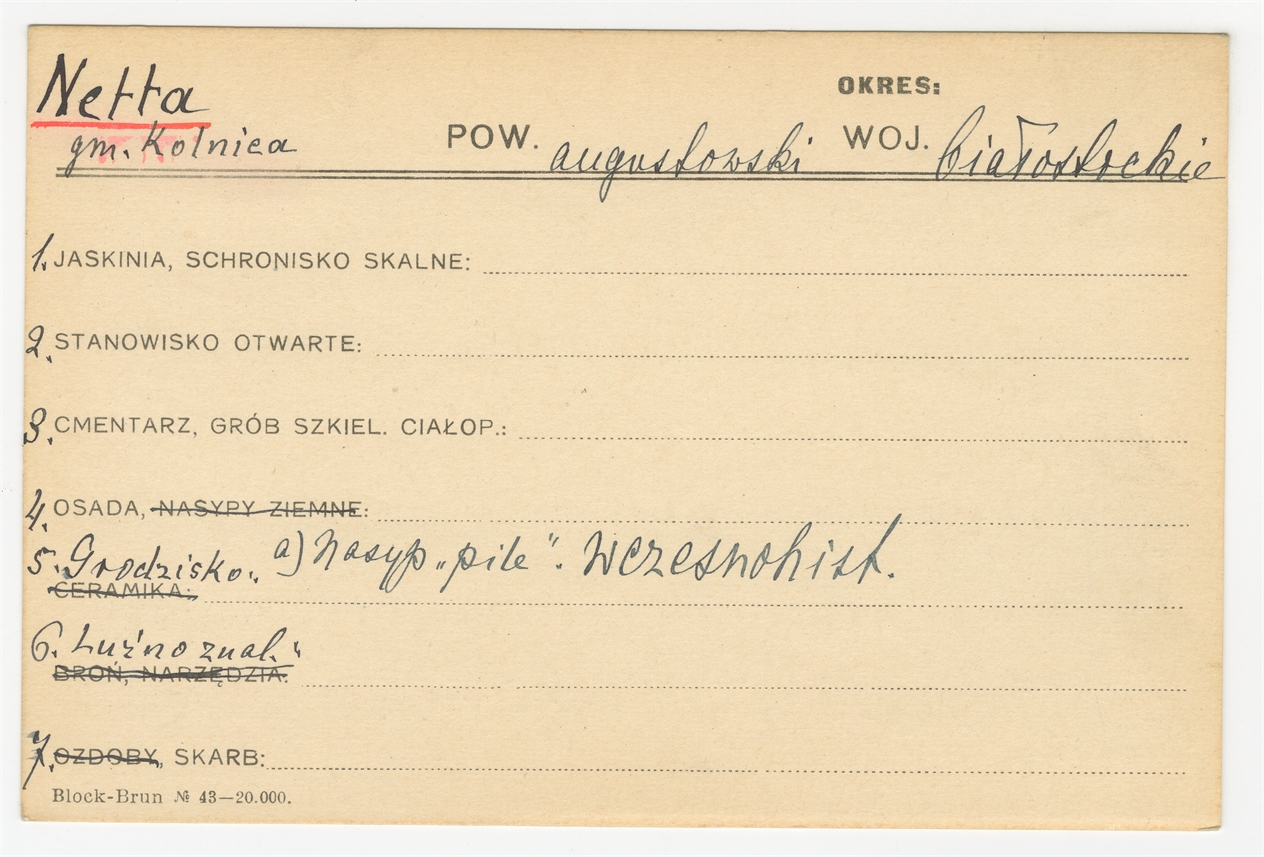 Netta
OKRES:
gm. Kolnica POW. augustowski WOJ. białostockie
1. JASKINIA, SCHRONISKO SKALNE:
2. STANOWISKO OTWARTE:
3. CMENTARZ, GRÓB SZKIEL. CIAŁOP.:
4. OSADA, NASYPY ZIEMNE:
5. Grodzisko: a) Nasyp „pile". Wczesnohist.
CERAMIKA:
6. Luźno znal.:
BROŃ, NARZĘDZIA:
7. OZDOBY, SKARB:
Block-Brun № 43—20.000.